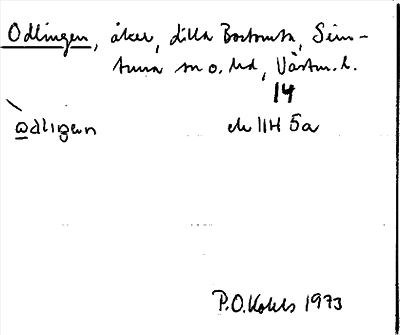 Odlingen, åker, Lilla Bortomta, Sim-
tuna sn o. hd, Västm. l.
14
òdlıgɐn
ek 11H 5a
P.O. Kohls 1973